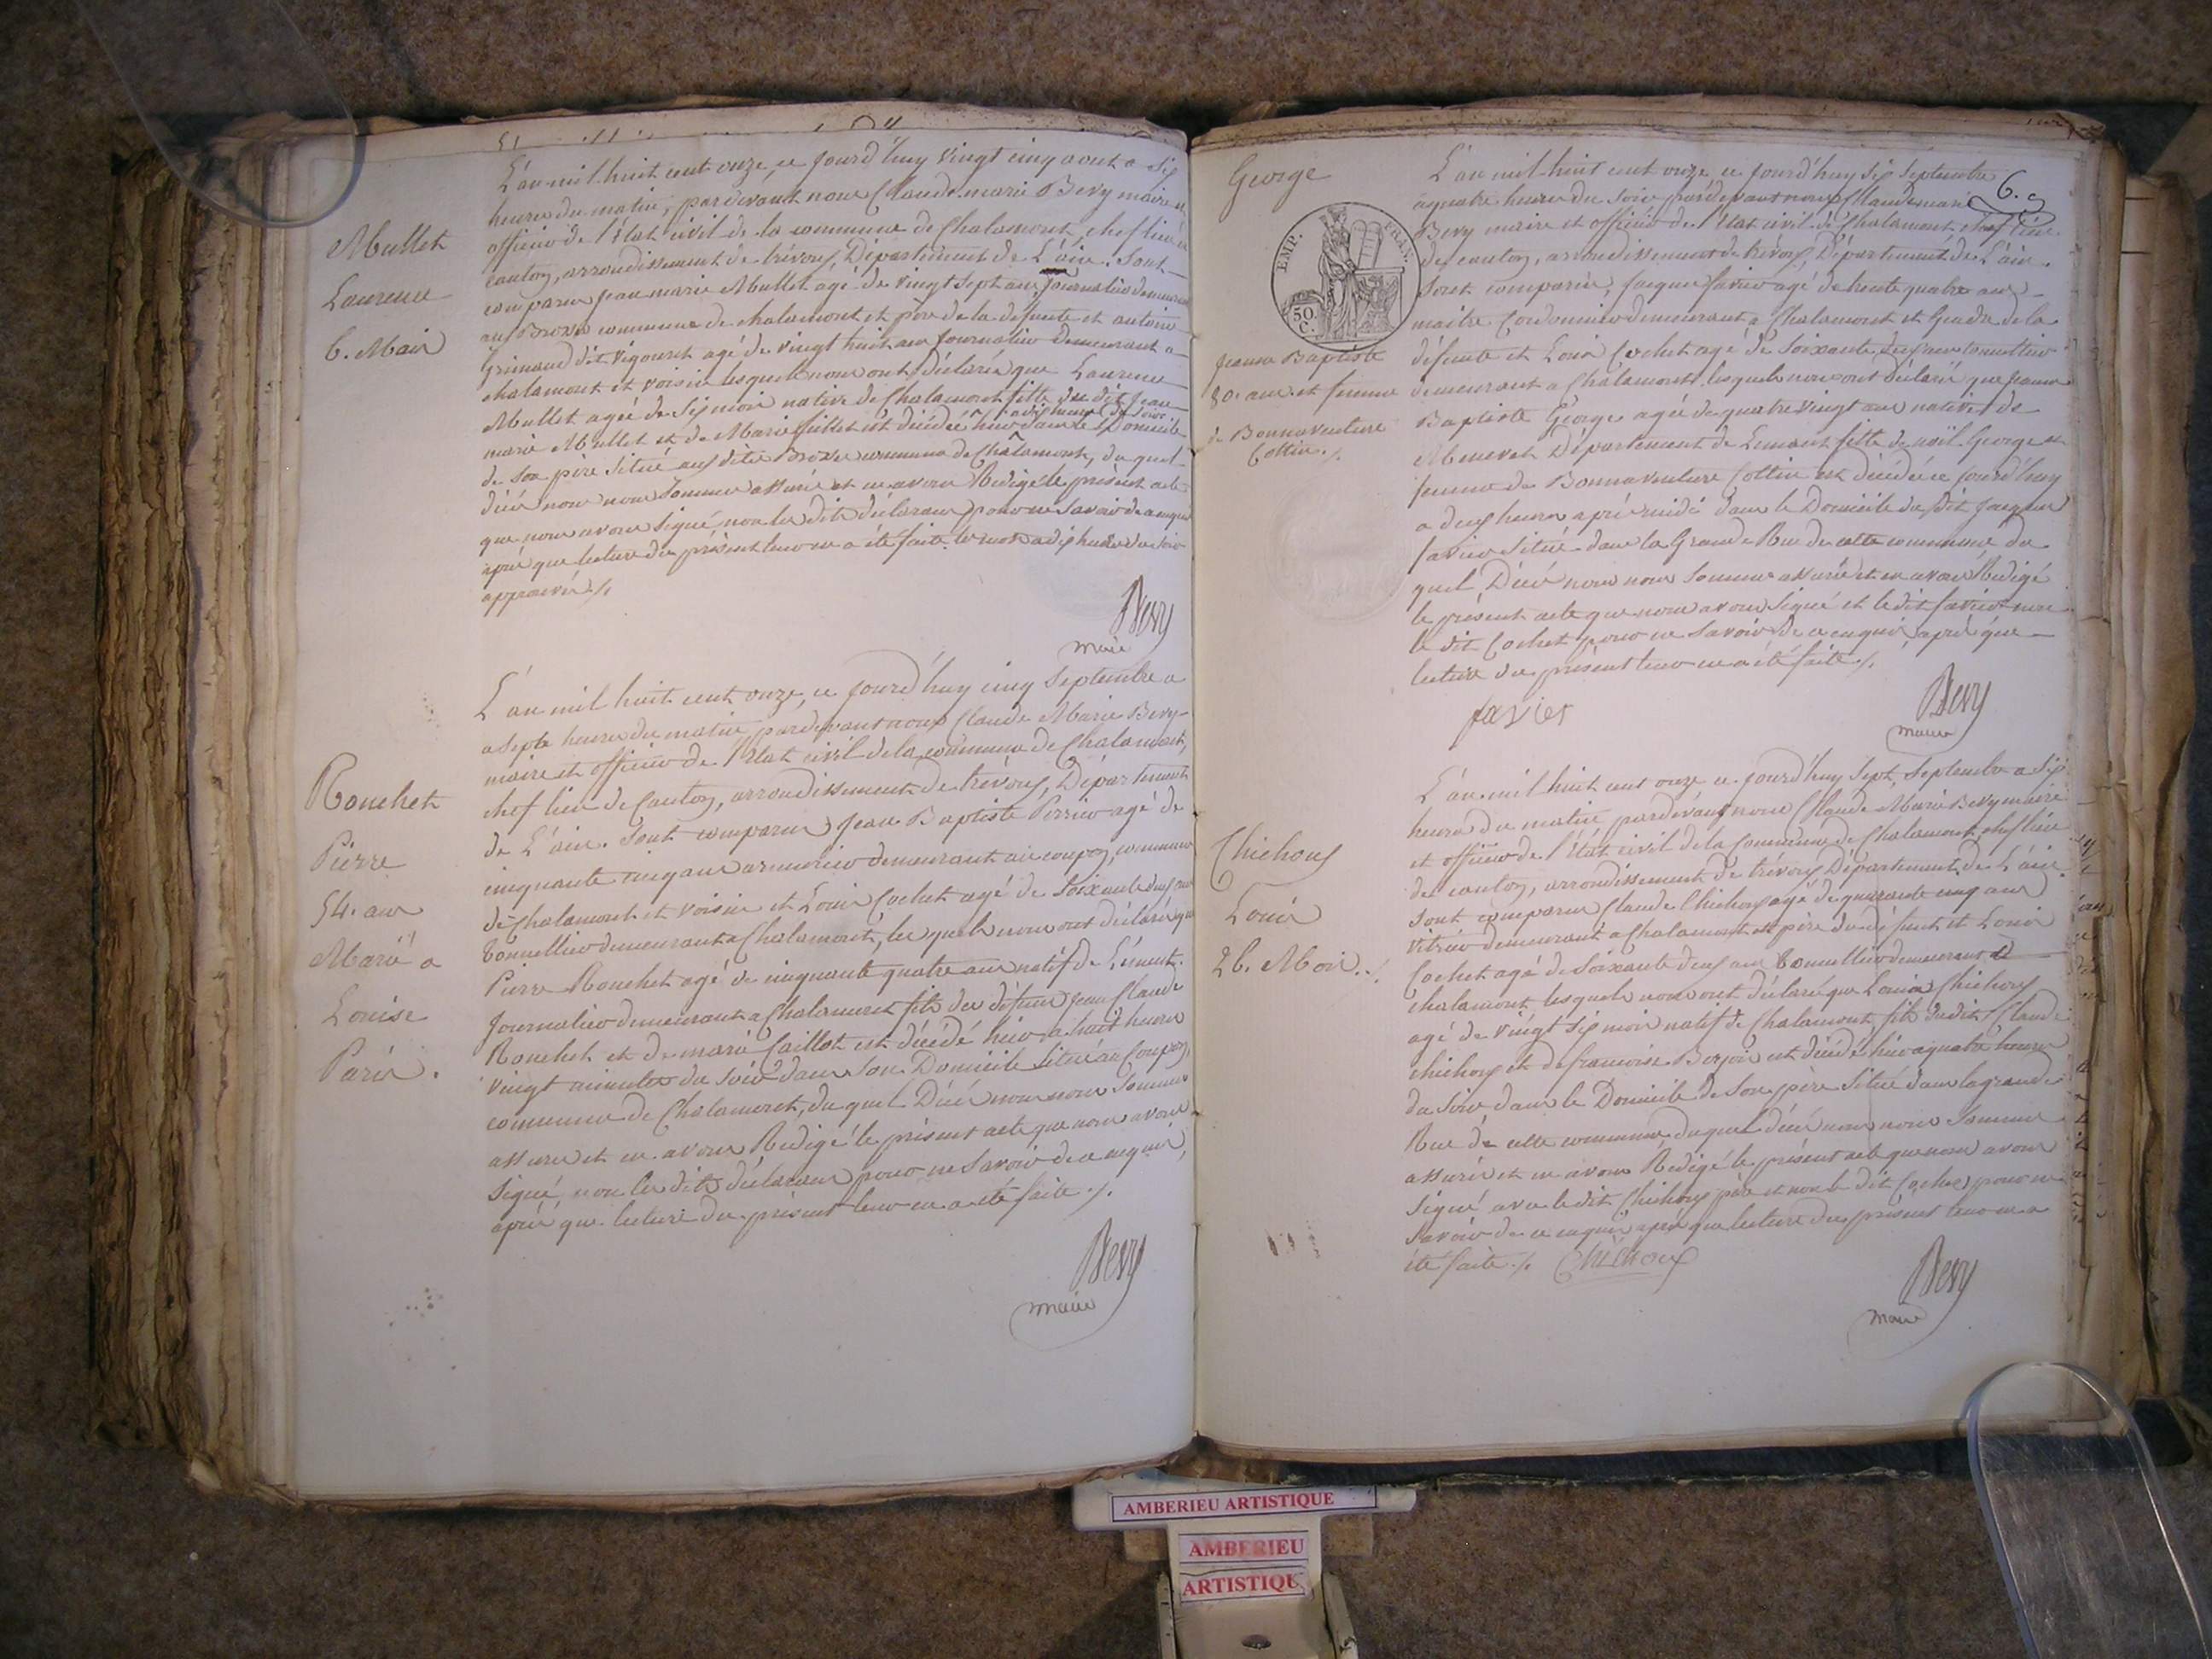 L'an mil huit cent onze, ce jourd'huy vingt cinq aout a six
heures du matin, pardevant nous Claude marie Bevy maire et
officier de l'état civil de la commune de Chalamont, chef lieu de
canton, arrondissement de trévoux, Département de L'ain. Sont
comparus jean marie Mullet agé de vingt sept ans, journalier demeurant
aux Brosses commune de chalamont et père de la défunte et antoine
Grimaud dit vigouret agé de vingt huit ans journalier demeurant a
chalamont et voisin lesquels nous ont déclarés que Laurence
Mullet ageé de six mois native de Chalamont fille du dit jean
marie Mullet et de Marie est décédée hier a dix heures du soir dans le Domicile
de son père situé aux dites Brosses commune de Châlamont, du quel
décès nous nous sommes assurés et en avons Rédigé le présent acte
que nous avons signé non les dits déclarans pour ne savoir de ce enquis
après que lecture du présent leur en a été faite. les mots a dix heures du soir
approuvés ./.
Bevy
maire
Mullet
Laurence
6. Mois
L'an mil huit cent onze, ce jourd'huy cinq Septembre a
a sept heures du matin pardevant nous Claude Marie Bevy
maire et officier de l'état civil de la commune de Chalamont,
chef lieu de Canton, arrondissement de trévoux, Département
de L'ain. Sont comparus jean Baptiste Perrier agé de
cinquante cinq ans armurier demeurant au coupy, commune
de Chalamont et voisin et Louis Cochet agé de soixante deux ans
tonnellier demeurant a Chalamont, les quels nous ont déclarés que
Pierre Rouchet agé de cinquante quatre ans natif de L'
journalier demeurant a Chalamont fils du défunt jean Claude
Rouchet et de marie Caillot est décédé hier a huit heures
vingt minutes du soir dans son Domicile situé au Coupy,
commune de Chalamont, du quel Décès nous nous sommes
assurés et en avons Rédigé le présent acte que nous avons
signé, non les dits déclarans pour ne savoir de ce enquis,
après que lecture du présent leur en a été faite ./.
Bevy
maire
Rouchet
Pierre
54. ans
Marié a
Louise
Paris.
George
EMP. FRAN.
50. C.
6.
L'an mil huit cent onze ce jourd'huy six septembre
a quatre heures du soir pardevant nous Claude marie
Bevy maire et officier de l'état civil de Chalamont, chef lieu
de canton, arrondissement de trévoux Département de L'ain.
Sont comparus, jacques favier agé de trente quatre ans
maitre Cordonnier demeurant a Chalamont et Gendre de la
défunte et Louis Cochet agé de soixante deux ans tonnellier
demeurant a Chalamont lesquels nous ont déclarés que jeanne
Baptiste George agée de quatre vingt ans native de
Département de fille de noël George et
femme de Bonnaventure Cottin est décédée ce jourd'huy
a deux heures après midi dans le Domicile du dit jacques
favier situé dans la Grande Rue de cette commune du
quel Décès nous nous sommes assurés et en avons Rédigé
le présent acte que nous avons signé et le dit favier non
le dit Cochet pour ne savoir de ce enquis, après que
lecture du présent leur en a été faite ./.
favier
Bevy
maire
jeanne Baptiste
80. ans et femme
de Bonnaventure
Cottin ./.
L'an mil huit cent onze ce jourd'huy sept Septembre a six
heures du matin pardevant nous Claude Marie Bevy maire
et officier de l'état civil de la commune de Chalamont, chef lieu
de canton, arrondissement de trévoux Département de L'ain.
Sont comparus Claude Chichoux agé de quarante cinq ans
vitrier demeurant a Chalamont et père du défunt et Louis
Cochet agé de soixante deux ans Tonnellier demeurant a
chalamont lesquels nous ont déclarés que Louis Chichoux
agé de vingt six mois natif de Chalamont, fils dudit Claude
chichoux et de francoise Berjon est décédé hier a quatre heures
du soir dans le Domicile de son père situé dans la grande
Rue de cette commune duquel décès nous nous sommes
assurés et en avons Rédigé le présent acte que nous avons
signé avec le dit Chichoux père et non le dit Cochet pour ne
savoir de ce enquis après que lecture du présent leur en a
été faite ./. Chichoux
Bevy
maire
Chichoux
Louis
26. Mois ./.
AMBERIEU ARTISTIQUE
AMBERIEU
ARTISTIQUE